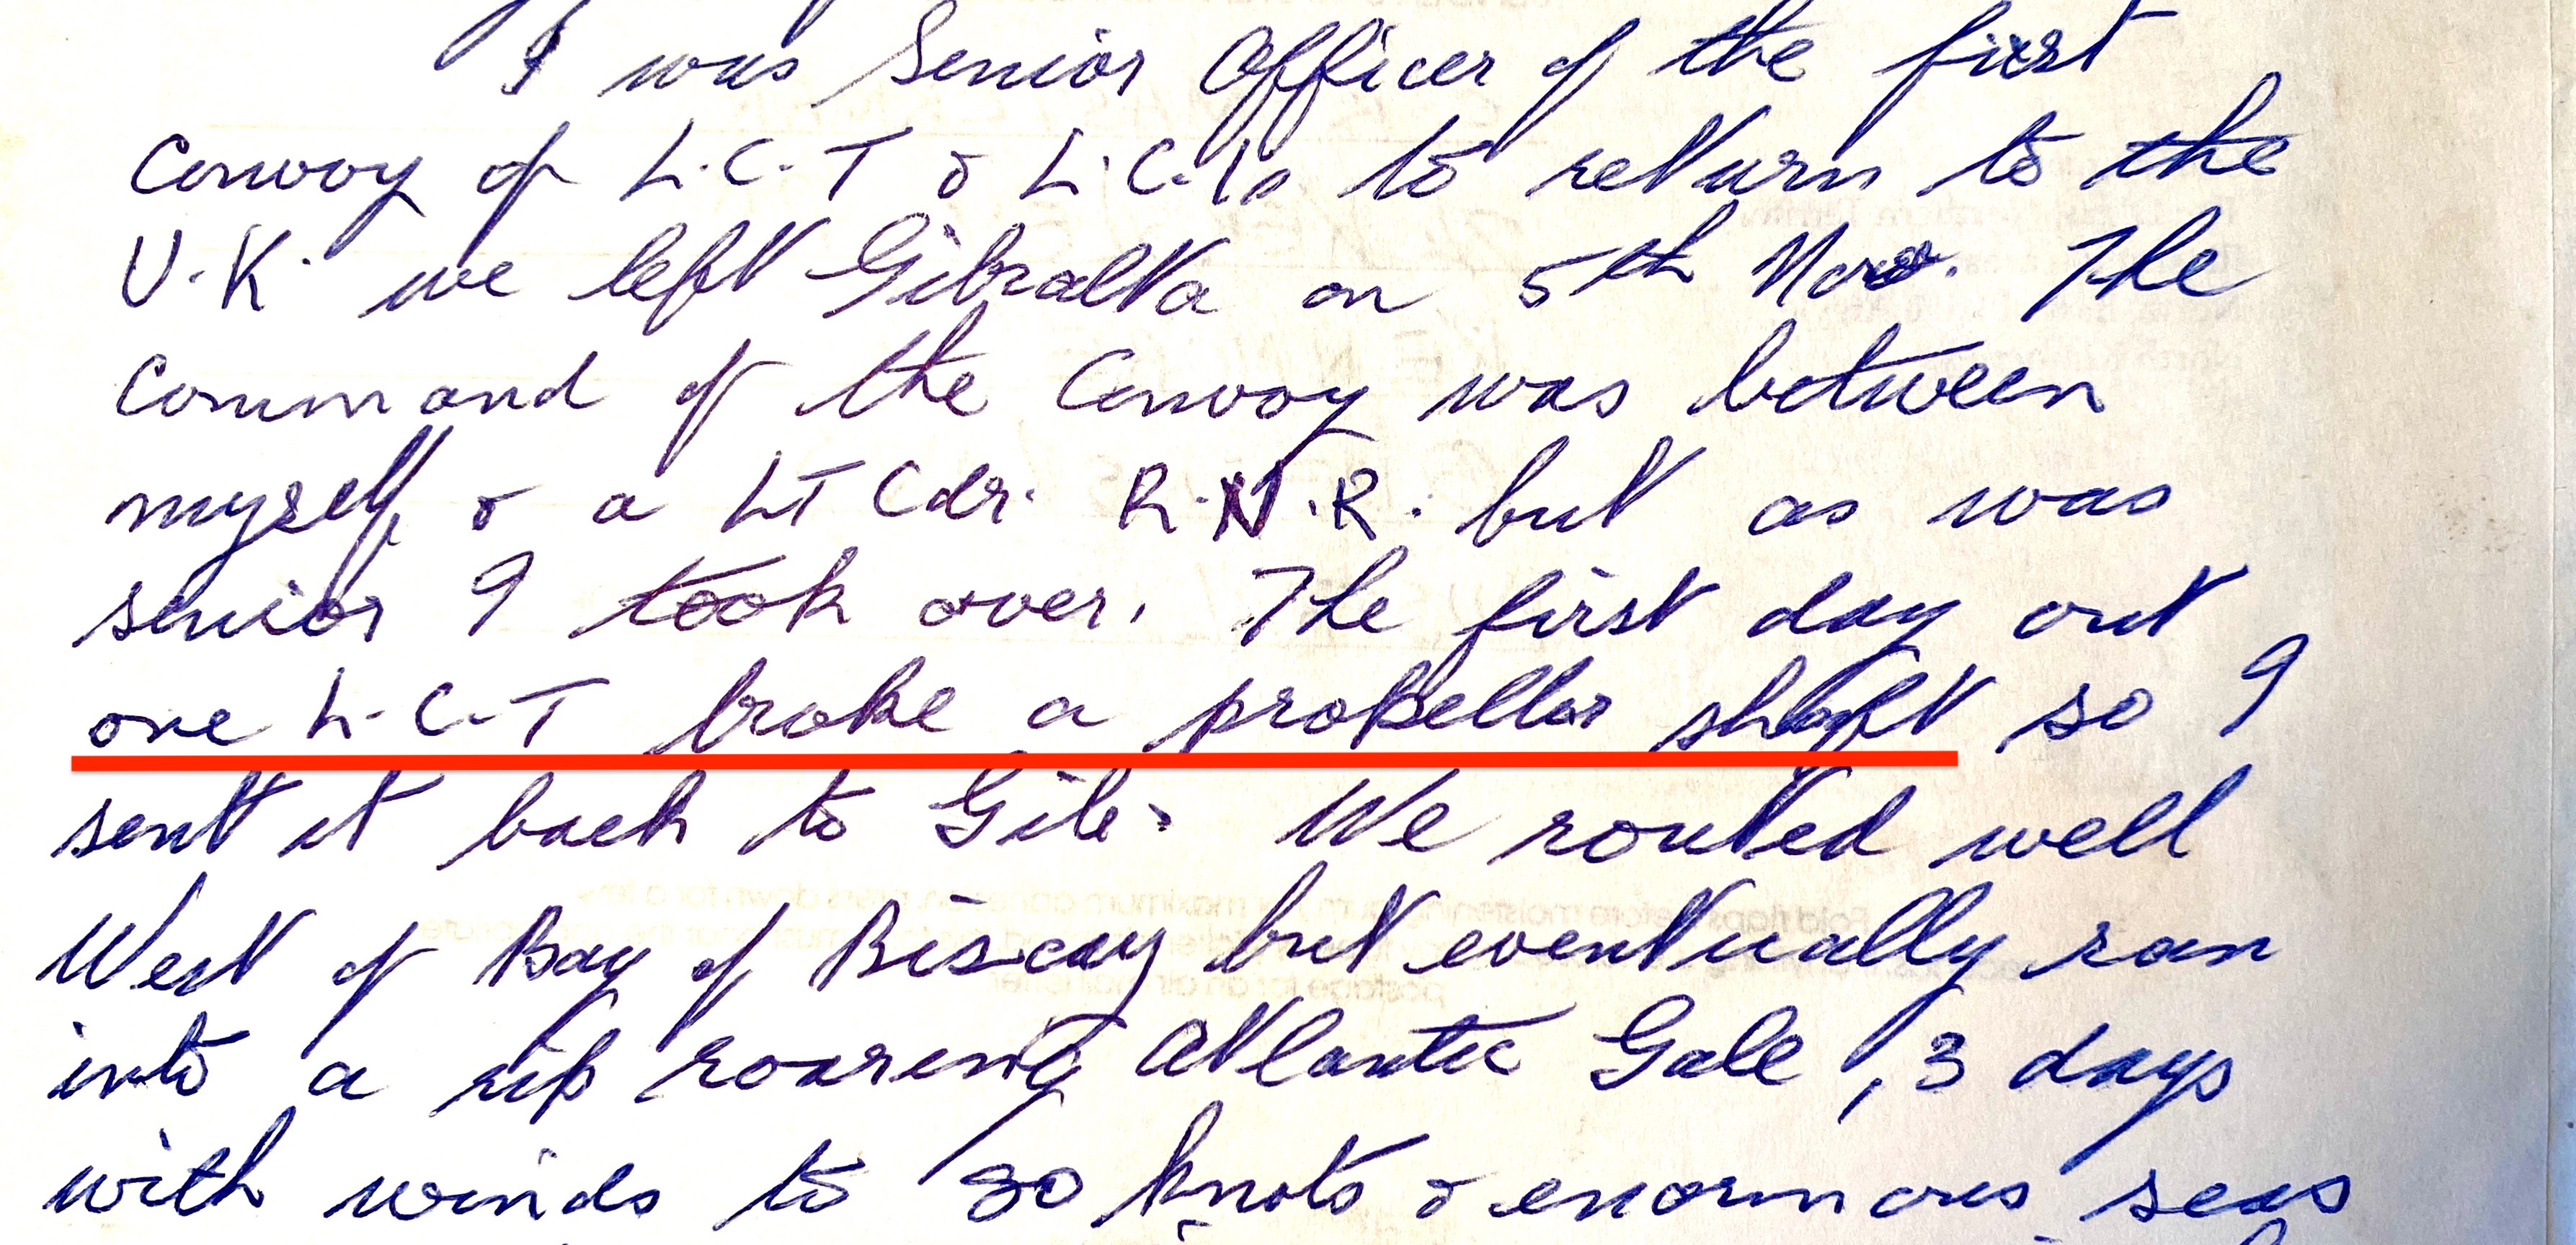 I was Senior Officer of the first
Convoy of L.C.T & L.C.Is to return to the
U.K. we left Gibralta on 5th Nov. The
Command of the Convoy was between
myself & a LT Cdr. R.N.R. but as was
senior I took over. The first day out
one L.C.T broke a propellor shaft so I
sent it back to Gib. We routed well
West of Bay of Biscay but eventually ran
into a rip roaring Atlantic Gale, 3 days
with winds to 80 knots & enormous seas